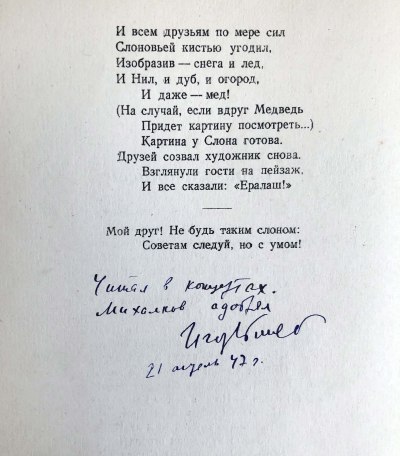 И всем друзьям по мере сил
Слоновьей кистью угодил,
Изобразив — снега и лед,
И Нил, и дуб, и огород,
И даже — мед!
(На случай, если вдруг Медведь
Придет картину посмотреть...)
Картина у Слона готова.
Друзей созвал художник снова.
Взглянули гости на пейзаж.
И все сказали: «Ералаш!»
Мой друг! Не будь таким слоном:
Советам следуй, но с умом!
Читал в концертах.
Михалков
21 апрель 47 г.